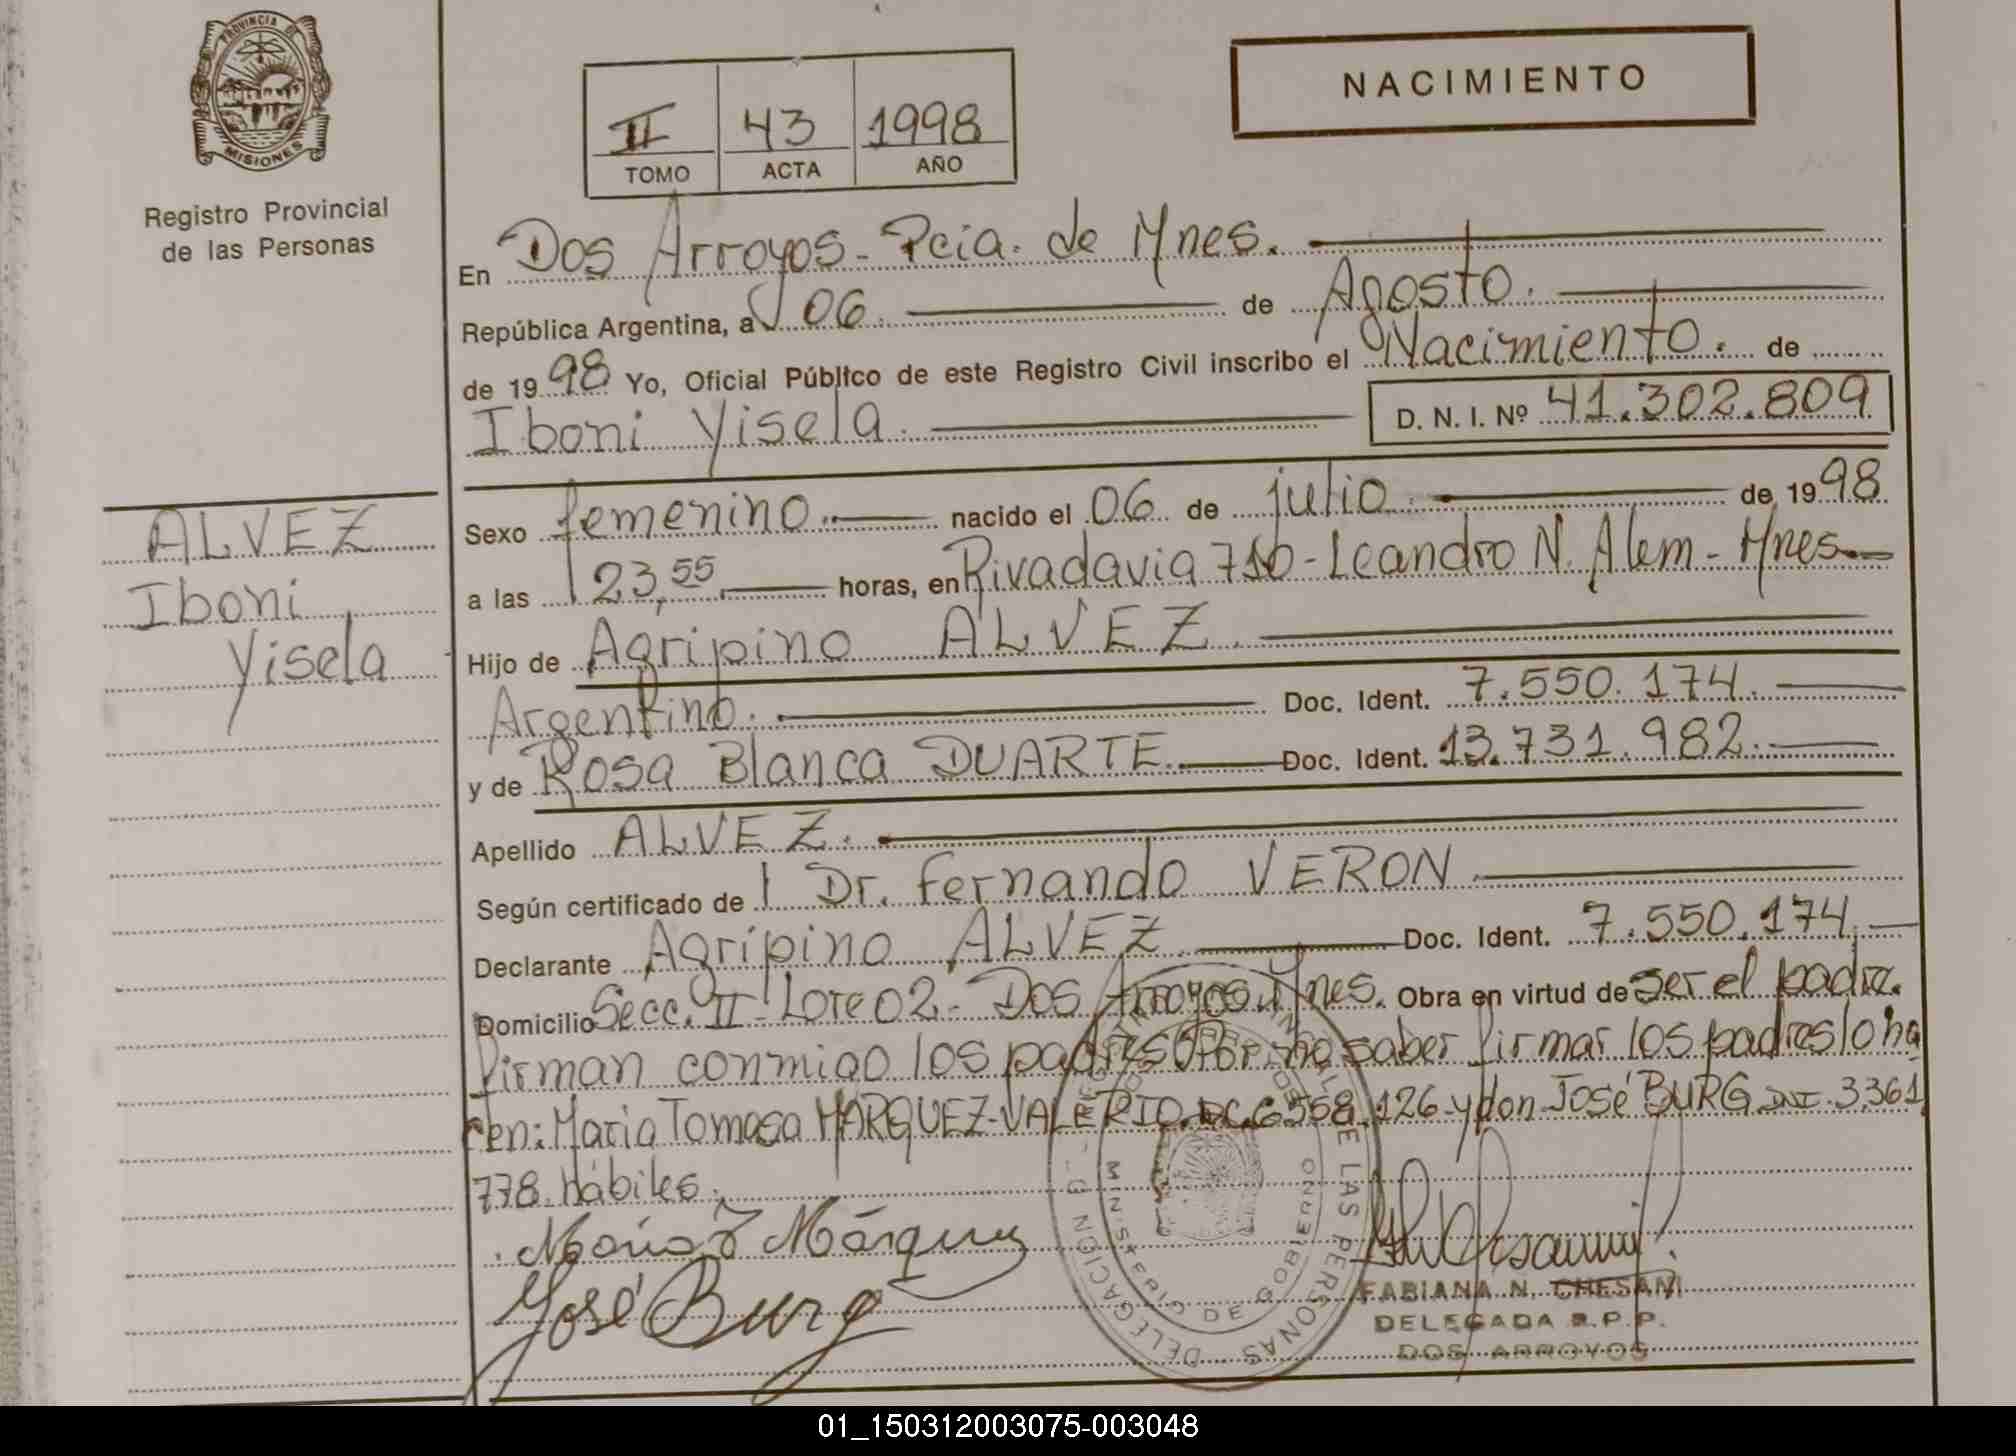 PROVINCIA DE
MISIONES
Registro Provincial
de las Personas
ALVEZ
Iboni
Yisela
II 43 1998
TOMO ACTA AÑO
NACIMIENTO
En Dos Arroyos - Pcia. de Mnes.
República Argentina, a 06. de Agosto.
de 1998 Yo, Oficial Público de este Registro Civil inscribo el Nacimiento. de
Iboni Yisela. D. N. I. Nº 41.302.809
Sexo femenino. nacido el 06 de julio. de 1998
a las 23,55 horas, en Rivadavia 710 - Leandro N. Alem - Mnes.
Hijo de Agripino ALVEZ.
Argentino. Doc. Ident. 7.550.174.
y de Rosa Blanca DUARTE. Doc. Ident. 13.731.982.
Apellido ALVEZ.
Según certificado de Dr. Fernando VERON.
Declarante Agripino ALVEZ Doc. Ident. 7.550.174.
Domicilio Secc. II - Lote 02 - Dos Arroyos. Mnes. Obra en virtud de ser el padre.
firman conmigo los padres. Por no saber firmar los padres lo ha
cen: Maria Tomasa MARQUEZ-VALERIO. DC. 6558.126 y don José BURG DNI 3.361
778. Hábiles.
María T Márquez
José Burg
FABIANA N. CHESANI
DELEGADA R.P.P.
DOS ARROYOS
DE LAS PERSONAS
DELEGACION
MINISTERIO DE GOBIERNO
01_150312003075-003048